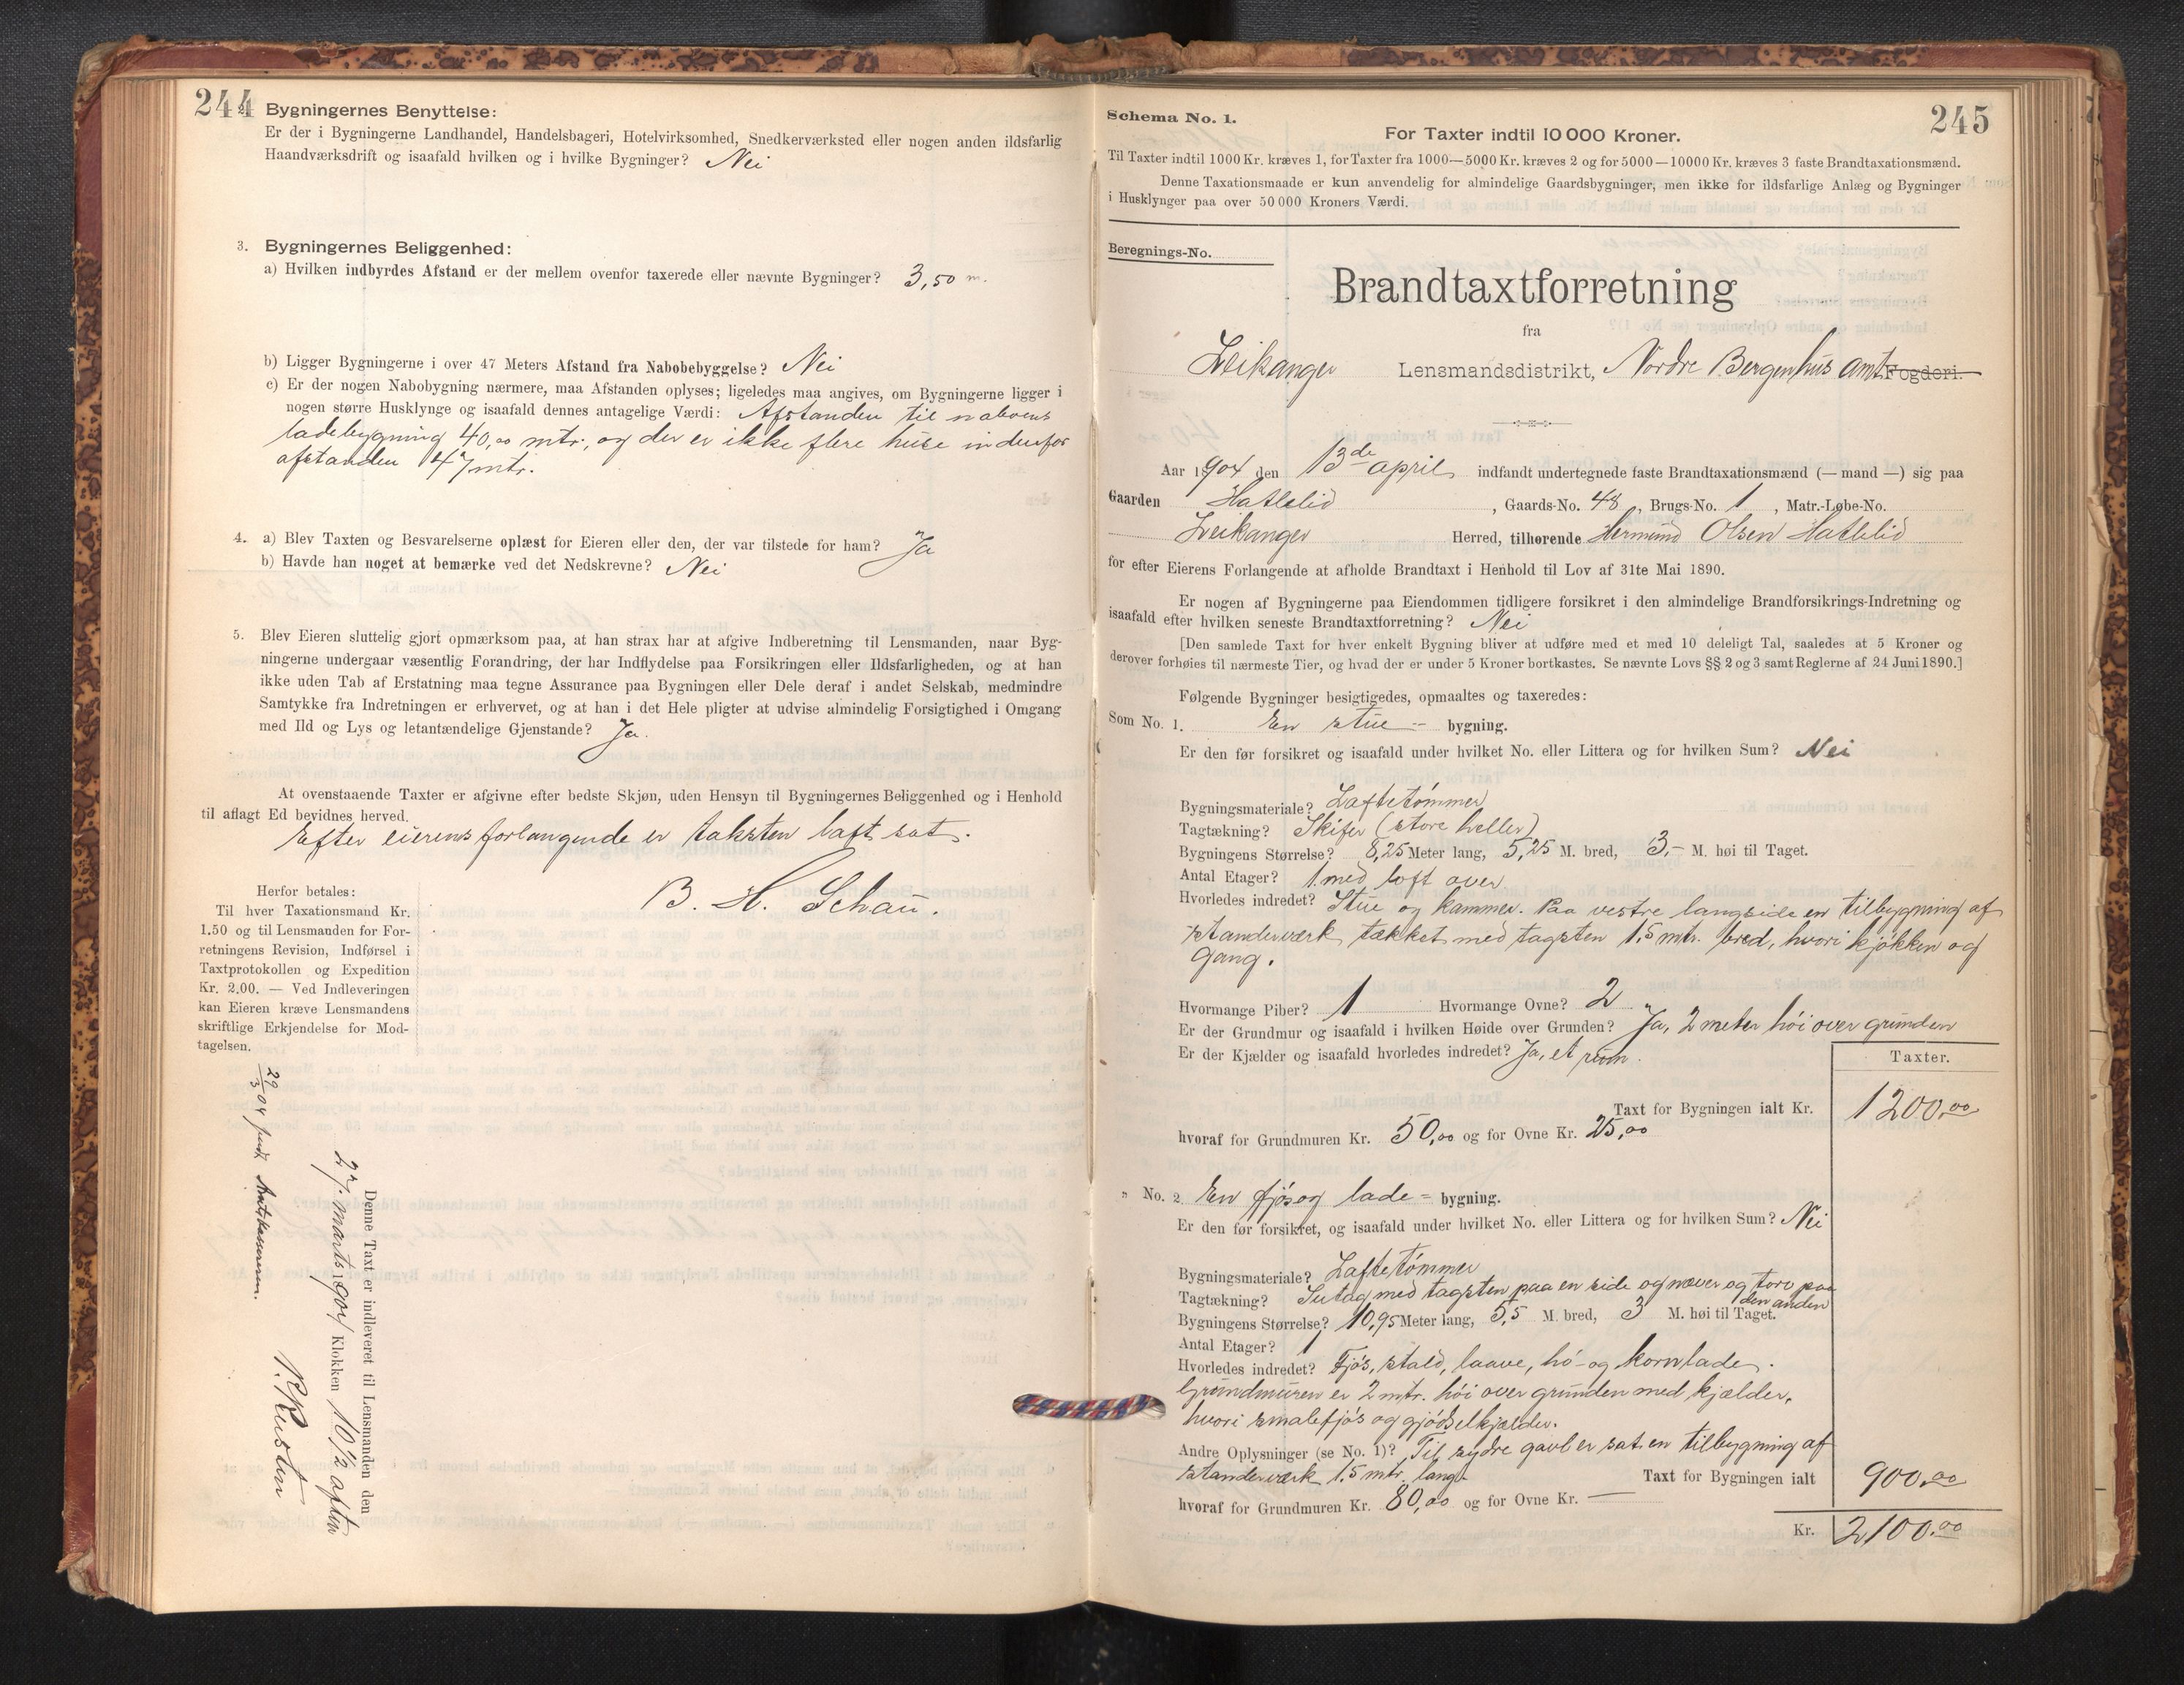 244
2. Bygningernes Benyttelse:
Er der i Bygningerne Landhandel, Handelsbageri, Hotelvirksomhed, Snedkerværksted eller nogen anden ildsfarlig
Haandværksdrift og isaafald hvilken og i hvilke Bygninger? Nei
3. Bygningernes Beliggenhed:
a) Hvilken indbyrdes Afstand er der mellem ovenfor taxerede eller nævnte Bygninger? 3,50 m.
b) Ligger Bygningerne i over 47 Meters Afstand fra Nabobebyggelse? Nei
c) Er der nogen Nabobygning nærmere, maa Afstanden oplyses; ligeledes maa angives, om Bygningerne ligger i
nogen større Husklynge og isaafald dennes antagelige Værdi: Afstanden til naboens
ladebygning 40,00 mtr., og der er ikke flere huse indenfor
afstanden 47 mtr.
4. a) Blev Taxten og Besvarelserne oplæst for Eieren eller den, der var tilstede for ham? Ja
b) Havde han noget at bemærke ved det Nedskrevne? Nei
5. Blev Eieren sluttelig gjort opmærksom paa, at han strax har at afgive Indberetning til Lensmanden, naar Byg-
ningerne undergaar væsentlig Forandring, der har Indflydelse paa Forsikringen eller Ildsfarligheden, og at han
ikke uden Tab af Erstatning maa tegne Assurance paa Bygningen eller Dele deraf i andet Selskab, medmindre
Samtykke fra Indretningen er erhvervet, og at han i det Hele pligter at udvise almindelig Forsigtighed i Omgang
med Ild og Lys og letantændelige Gjenstande? Ja.
At ovenstaaende Taxter er afgivne efter bedste Skjøn, uden Hensyn til Bygningernes Beliggenhed og i Henhold
til aflagt Ed bevidnes herved.
Efter eierens forlangende er taksten lavt sat.
B. H. Schau.
Herfor betales:
Til hver Taxationsmand Kr.
1.50 og til Lensmanden for For-
retningens Revision, Indførsel i
Taxtprotokollen og Expedition
Kr. 2.00. — Ved Indleveringen
kan Eieren kræve Lensmandens
skriftlige Erkjendelse for Mod-
tagelsen.
Denne Taxt er indleveret til Lensmanden den
27. marts 1904 Klokken 10 1/2 aften
29/3 04 sendt Amtskassereren.
245
Schema No. 1.
For Taxter indtil 10 000 Kroner.
Til Taxter indtil 1000 Kr. kræves 1, for Taxter fra 1000—5000 Kr. kræves 2 og for 5000—10000 Kr. kræves 3 faste Brandtaxationsmænd.
Denne Taxationsmaade er kun anvendelig for almindelige Gaardsbygninger, men ikke for ildsfarlige Anlæg og Bygninger
i Husklynger paa over 50 000 Kroners Værdi.
Beregnings-No.
Brandtaxtforretning
fra
Leikanger Lensmandsdistrikt, Nordre Bergenhus amt Fogderi.
Aar 1904 den 13de april indfandt undertegnede faste Brandtaxationsmænd (— mand —) sig paa
Gaarden Hatlelid, Gaards-No. 48, Brugs-No. 1, Matr.-Løbe-No.
Leikanger Herred, tilhørende Hermund Olsen Hatlelid
for efter Eierens Forlangende at afholde Brandtaxt i Henhold til Lov af 31te Mai 1890.
Er nogen af Bygningerne paa Eiendommen tidligere forsikret i den almindelige Brandforsikrings-Indretning og
isaafald efter hvilken seneste Brandtaxtforretning? Nei
[Den samlede Taxt for hver enkelt Bygning bliver at udføre med et med 10 deleligt Tal, saaledes at 5 Kroner og
derover forhøies til nærmeste Tier, og hvad der er under 5 Kroner bortkastes. Se nævnte Lovs §§ 2 og 3 samt Reglerne af 24 Juni 1890.]
Følgende Bygninger besigtigedes, opmaaltes og taxeredes:
Som No. 1. En stue - bygning.
Er den før forsikret og isaafald under hvilket No. eller Littera og for hvilken Sum? Nei
Bygningsmateriale? Laftetømmer
Tagtækning? Skifer (store heller)
Bygningens Størrelse? 8,25 Meter lang, 5,25 M. bred, 3,- M. høi til Taget.
Antal Etager? 1 med loft over
Hvorledes indredet? Stue og kammer. Paa vestre langside en tilbygning af
standerværk tækket med tagsten 1,5 mtr. bred, hvori kjøkken og
gang.
Hvormange Piber? 1 Hvormange Ovne? 2
Er der Grundmur og isaafald i hvilken Høide over Grunden? Ja, 2 meter høi over grunden
Er der Kjælder og isaafald hvorledes indredet? Ja, et rum.
Taxter.
Taxt for Bygningen ialt Kr. 1200,00
hvoraf for Grundmuren Kr. 50,00 og for Ovne Kr. 25,00
" No. 2 En fjøs og lade - bygning.
Er den før forsikret, og isaafald under hvilket No. eller Littera og for hvilken Sum? Nei
Bygningsmateriale? Laftetømmer
Tagtækning? Sutag med tagsten paa en side og næver og torv paa
den anden
Bygningens Størrelse? 10,95 Meter lang, 5,5 M. bred, 3 M. høi til Taget.
Antal Etager? 1
Hvorledes indredet? Fjøs, stald, laave, hø- og kornlade.
Grundmuren er 2 mtr. høi over grunden med kjælder,
hvori smalefjøs og gjødselkjælder.
Andre Oplysninger (se No. 1)? Til søndre gavl er sat en tilbygning af
standerværk 1,5 mtr. lang. Taxt for Bygningen ialt 900,00
hvoraf for Grundmuren Kr. 80,00 og for Ovne Kr. —
Kr. 2100,00